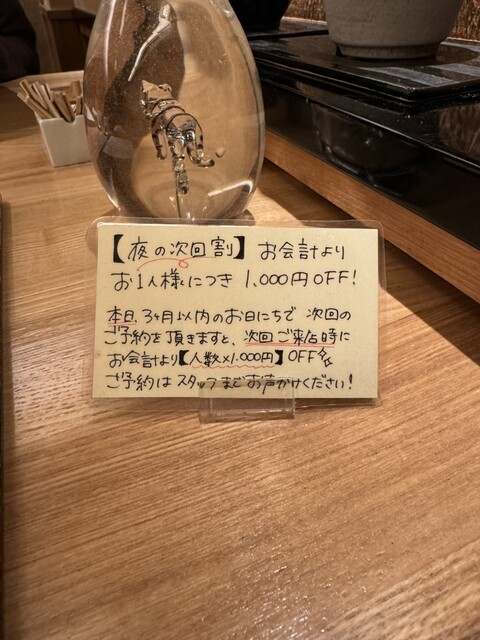 【夜の次回割】 お会計より
お1人様につき 1,000円OFF!
本日、3ヶ月以内のお日にちで 次回の
ご予約を頂きますと、次回ご来店時に
お会計より【人数×1,000円】OFF
ご予約はスタッフまでお声がけください!